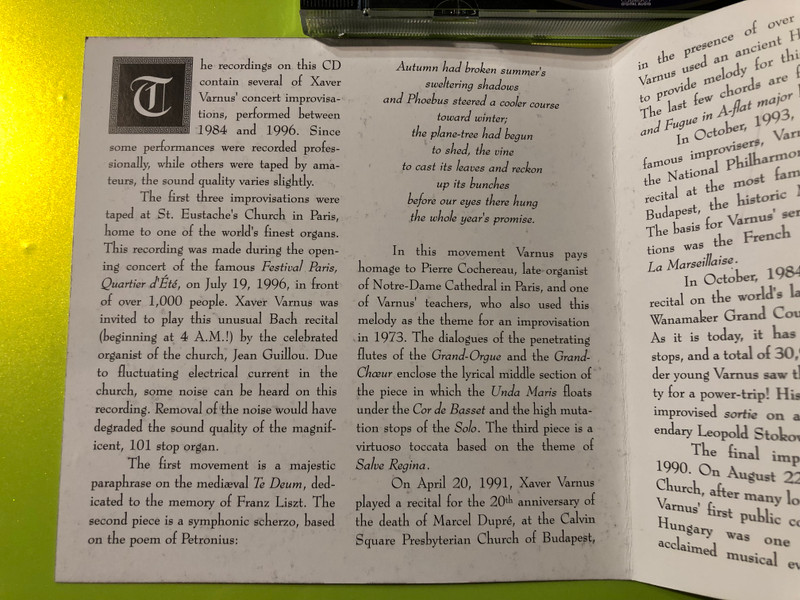 The recordings on this CD
contain several of Xaver
Varnus' concert improvisa-
tions, performed between
1984 and 1996. Since
some performances were recorded profes-
sionally, while others were taped by ama-
teurs, the sound quality varies slightly.
The first three improvisations were
taped at St. Eustache's Church in Paris,
home to one of the world's finest organs.
This recording was made during the open-
ing concert of the famous Festival Paris,
Quartier d'Été, on July 19, 1996, in front
of over 1,000 people. Xaver Varnus was
invited to play this unusual Bach recital
(beginning at 4 A.M.!) by the celebrated
organist of the church, Jean Guillou. Due
to fluctuating electrical current in the
church, some noise can be heard on this
recording. Removal of the noise would have
degraded the sound quality of the magnif-
icent, 101 stop organ.
The first movement is a majestic
paraphrase on the mediæval Te Deum, ded-
icated to the memory of Franz Liszt. The
second piece is a symphonic scherzo, based
on the poem of Petronius:
Autumn had broken summer's
sweltering shadows
and Phoebus steered a cooler course
toward winter;
the plane-tree had begun
to shed, the vine
to cast its leaves and reckon
up its bunches
before our eyes there hung
the whole year's promise.
In this movement Varnus pays
homage to Pierre Cochereau, late organist
of Notre-Dame Cathedral in Paris, and one
of Varnus' teachers, who also used this
melody as the theme for an improvisation
in 1973. The dialogues of the penetrating
flutes of the Grand-Orgue and the Grand-
Chœur enclose the lyrical middle section of
the piece in which the Unda Maris floats
under the Cor de Basset and the high muta-
tion stops of the Solo. The third piece is a
virtuoso toccata based on the theme of
Salve Regina.
On April 20, 1991, Xaver Varnus
played a recital for the 20th anniversary of
the death of Marcel Dupré, at the Calvin
Square Presbyterian Church of Budapest,
in the presence of over
Varnus used an ancient
to provide melody for
The last few chords are
and Fugue in A-flat major
In October, 1993,
famous improvisers,
the National
recital at the most
Budapest, the historic
The basis for Varnus'
tions was the French
La Marseillaise.
In October, 1984
recital on the world's
Wanamaker Grand
As it is today, it has
stops, and a total of
der young Varnus saw
ty for a power-trip!
improvised sortie on a
endary Leopold
The final
1990. On August 22
Church, after many
Varnus' first public
Hungary was one
acclaimed musical